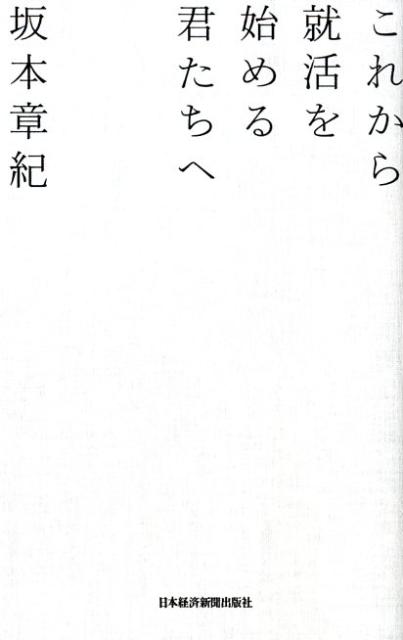 これから
就活を
始める
君たちへ
坂本章紀
日本経済新聞出版社